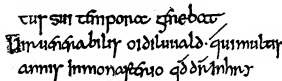 tus sui tempora gerebat
Uir uenerabilis oidiluuald · qui multis
annis in monasterio qđ dr̄ Inhry